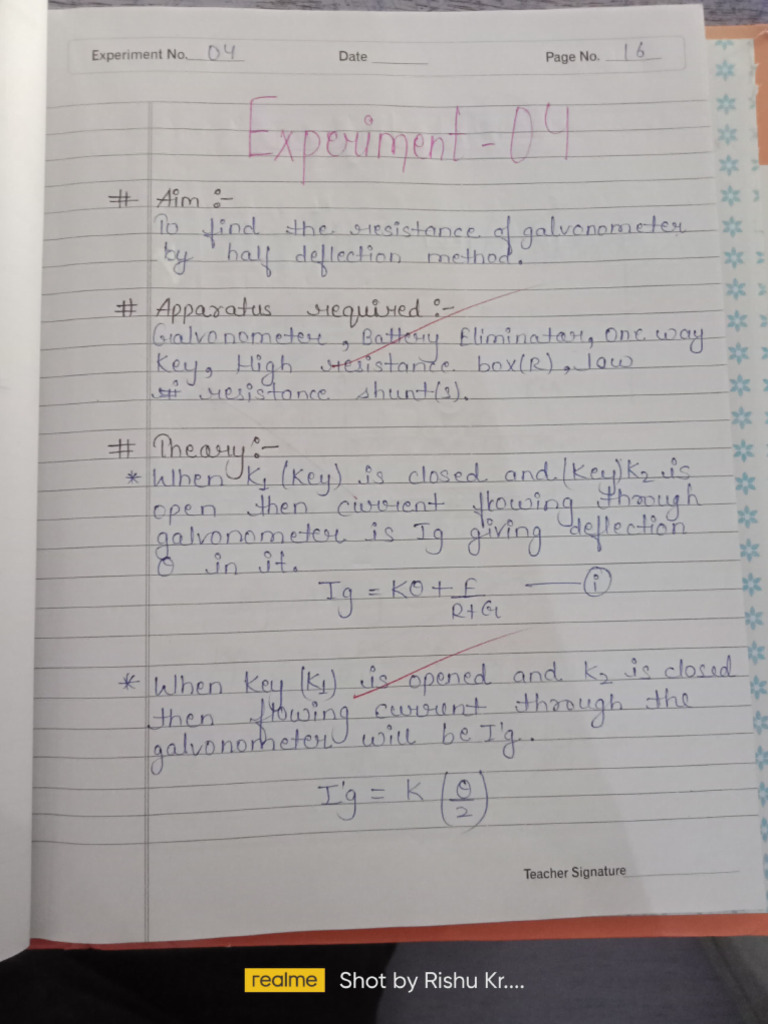 Experiment No. 04 Date Page No. 16
Experiment - 04
# Aim :-
To find the resistance of galvonometer
by half deflection method.
# Apparatus required :-
Galvonometer, Battery Eliminator, One way
Key, High resistance box(R), low
resistance shunt(s).
# Theory :-
* When K₁ (Key) is closed and (Key) K₂ is
open then current flowing through
galvonometer is Ig giving deflection
θ in it.
Ig = Kθ + E/R+G — (i)
* When Key (K₁) is opened and K₂ is closed
then flowing current through the
galvonometer will be I'g.
I'g = K (θ/2)
Teacher Signature
realme Shot by Rishu Kr....